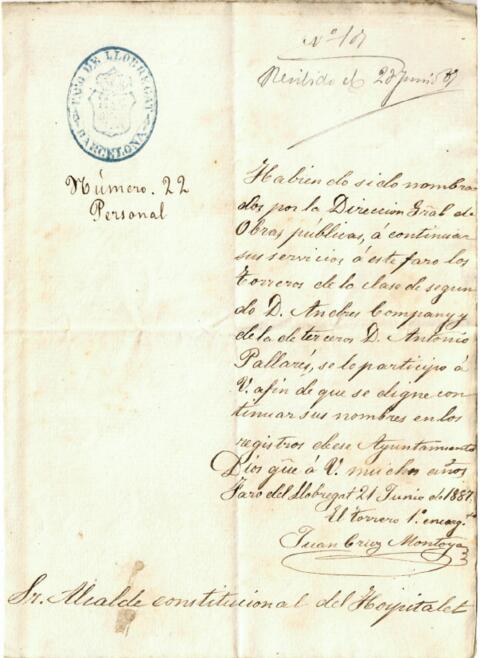 Nº 107
Recibido el 22 Junio 87
FARO DE LLOBREGAT
BARCELONA
Número. 22
Personal
Habiendo sido nombra
dos por la Direccion Gral de
Obras públicas, á continuar
sus servicios á este faro los
torreros de la clase de segun
do D. Andres Company y
de la de terceros D. Antonio
Pallarés, se lo participo á
V. afin de que se digne con
tinuar sus nombres en los
registros de ese Ayuntamiento
Dios gũe á V. muchos años
Faro del Llobregat 21 Junio de 1887.
El torrero 1º encargdo
Juan Cruz Montoya
Sr. Alcalde constitucional del Hospitalet